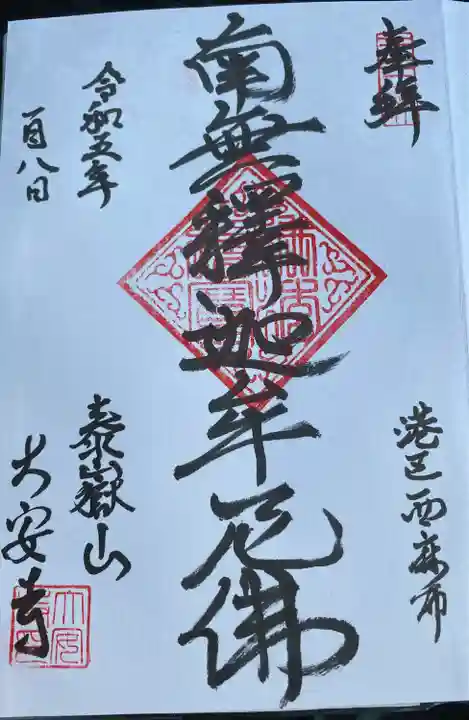 奉拜
港区西麻布
南無釋迦牟尼佛
令和五年
一月八日
泰嶽山
大安寺